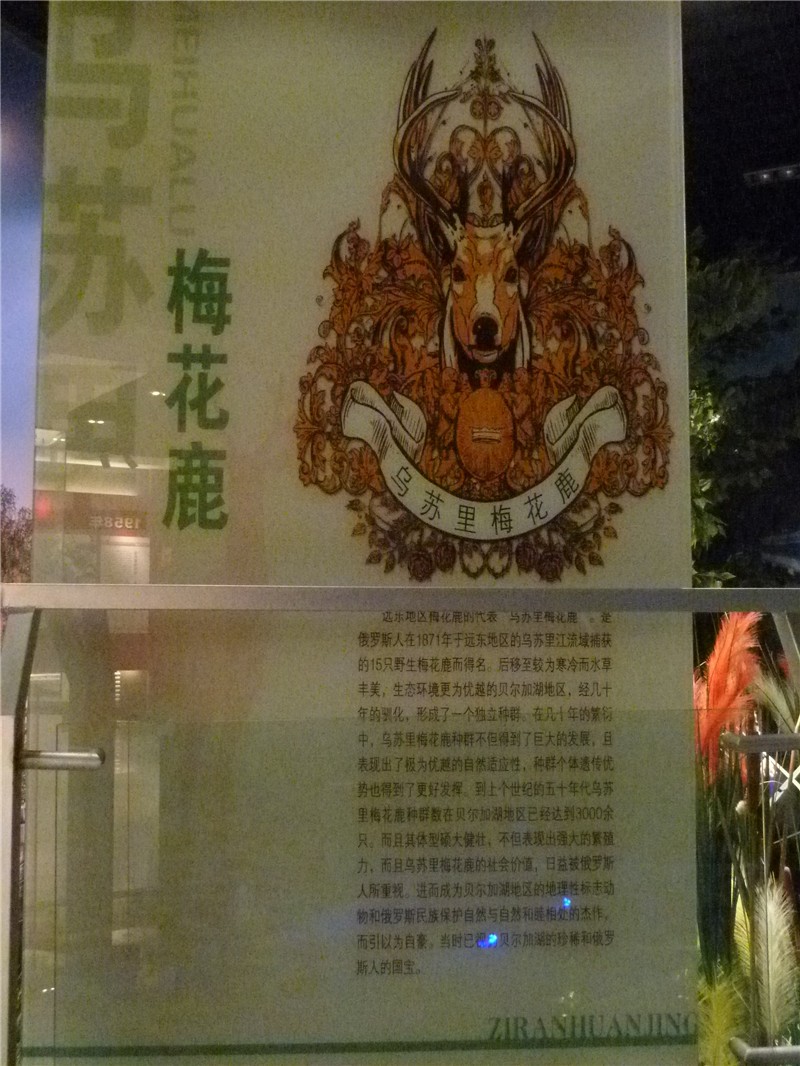 乌苏
MEIHUALU
梅花鹿
乌苏里梅花鹿
1958年
远东地区梅花鹿的代表“乌苏里梅花鹿”。是
俄罗斯人在1871年于远东地区的乌苏里江流域捕获
的15只野生梅花鹿而得名。后移至较为寒冷而水草
丰美，生态环境更为优越的贝尔加湖地区，经几十
年的驯化，形成了一个独立种群。在几十年的繁衍
中，乌苏里梅花鹿种群不但得到了巨大的发展，且
表现出了极为优越的自然适应性，种群个体遗传优
势也得到了更好发挥。到上个世纪的五十年代乌苏
里梅花鹿种群数在贝尔加湖地区已经达到3000余
只。而且其体型硕大健壮，不但表现出强大的繁殖
力，而且乌苏里梅花鹿的社会价值，日益被俄罗斯
人所重视。进而成为贝尔加湖地区的地理性标志动
物和俄罗斯民族保护自然与自然和睦相处的杰作，
而引以为自豪。当时已视为贝尔加湖的珍稀和俄罗
斯人的国宝。
ZIRANHUANJING